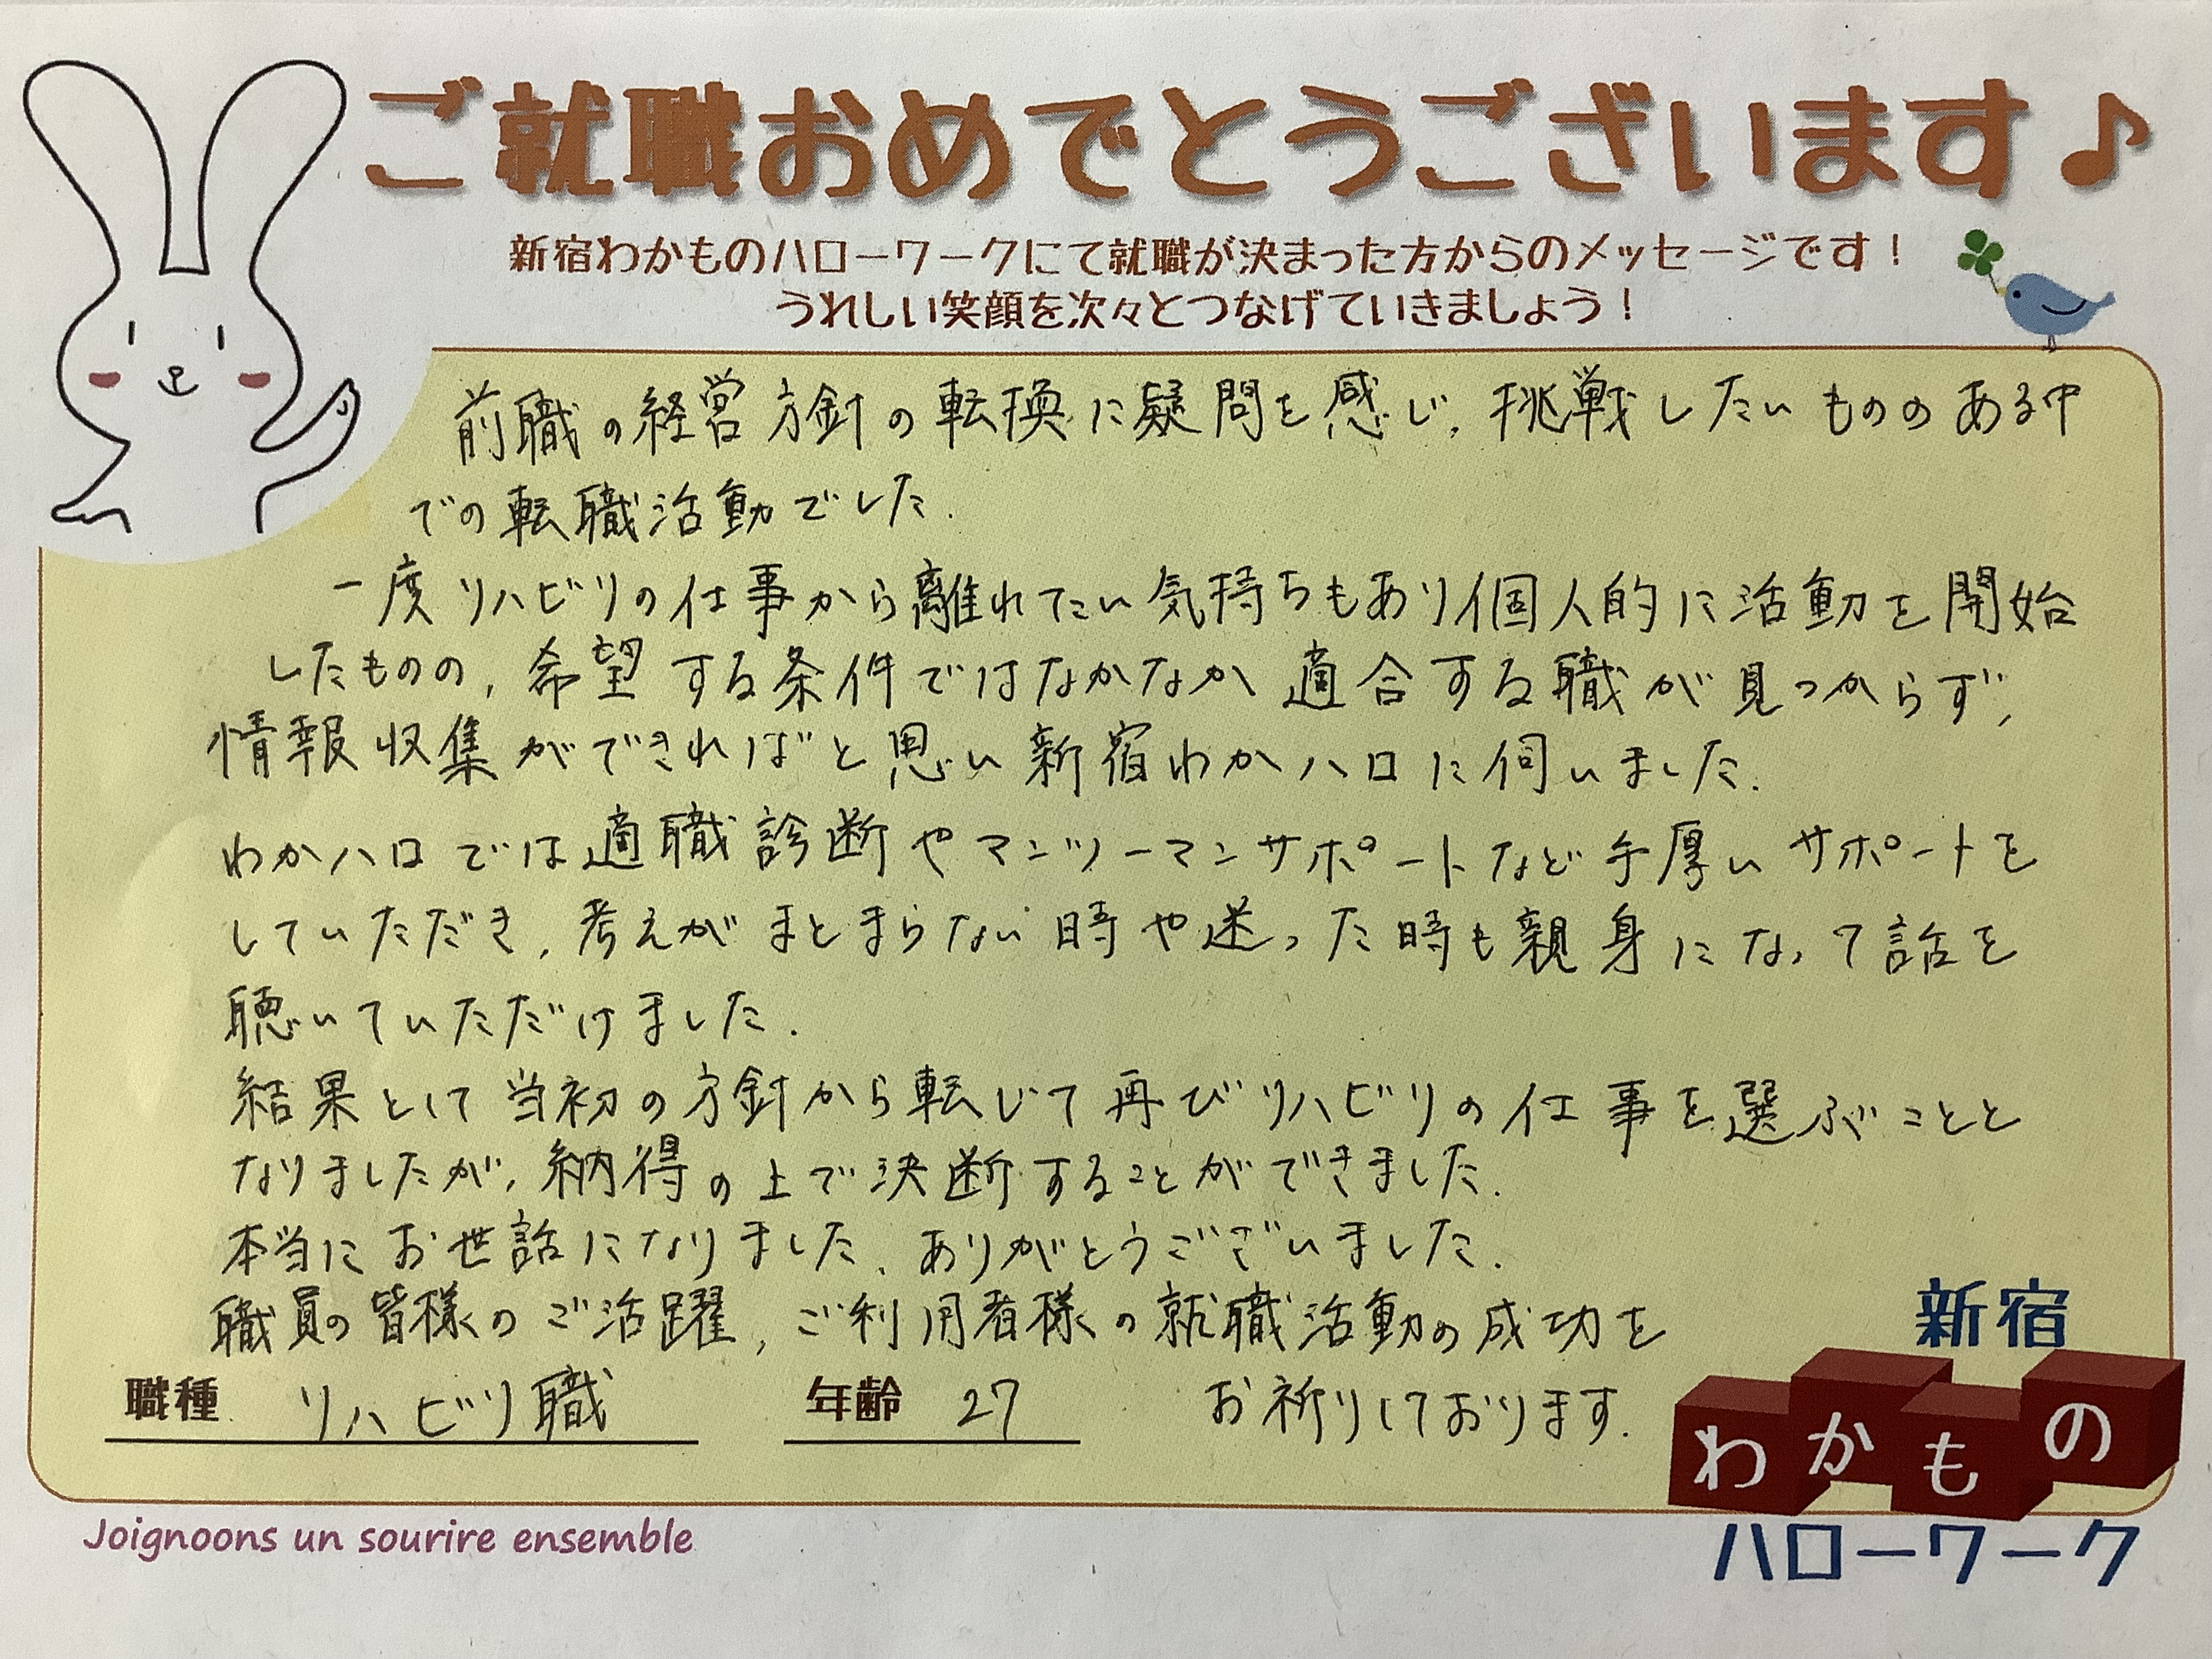 ご就職おめでとうございます♪
新宿わかものハローワークにて就職が決まった方からのメッセージです！
うれしい笑顔を次々とつなげていきましょう！
前職の経営方針の転換に疑問を感じ、挑戦したいもののある中
での転職活動でした.
一度リハビリの仕事から離れてたい気持ちもあり個人的に活動を開始
したものの、希望する条件ではなかなか適合する職が見つからず、
情報収集ができればと思い新宿わかハロに伺いました.
わかハロでは適職診断やマンツーマンサポートなど手厚いサポートを
していただき、考えがまとまらない時や迷った時も親身になって話を
聴いていただけました.
結果として当初の方針から転じて再びリハビリの仕事を選ぶことと
なりましたが、納得の上で決断することができました.
本当にお世話になりました、ありがとうございました.
職員の皆様のご活躍、ご利用者様の就職活動の成功を
お祈りしております.
職種 リハビリ職 年齢 27
新宿
わかもの
ハローワーク
Joignoons un sourire ensemble